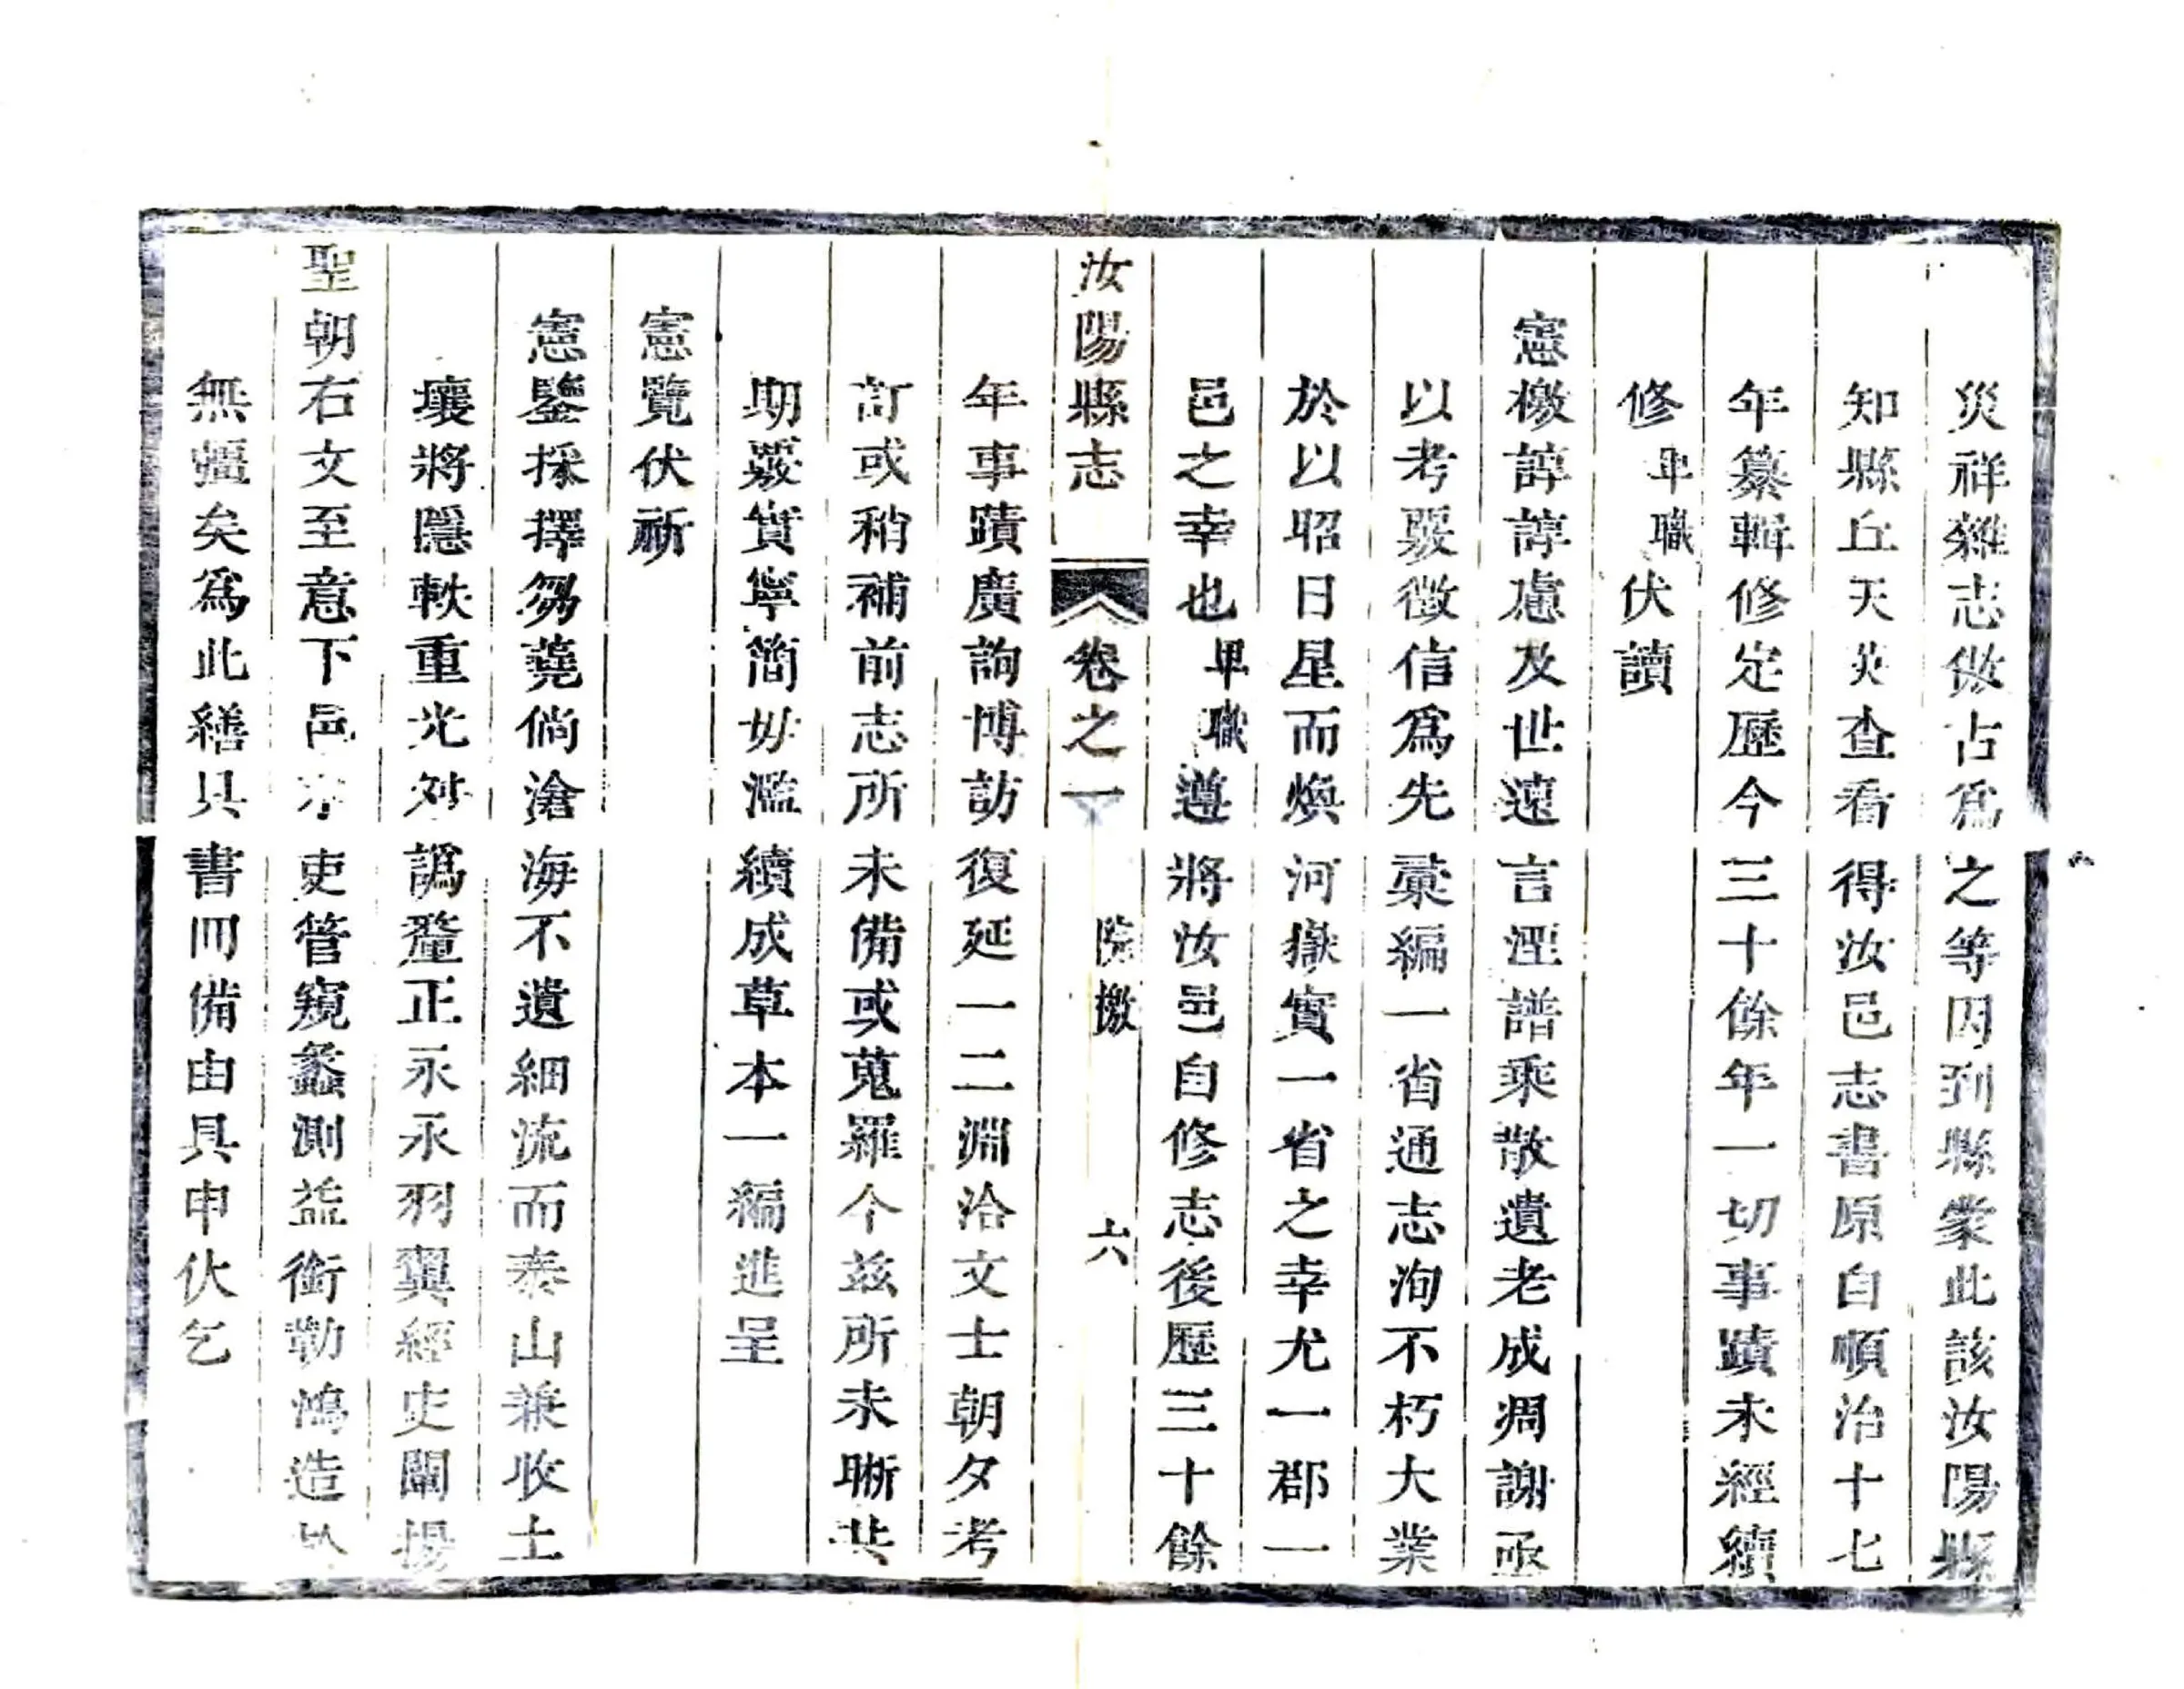 災祥雜志倣古爲之等因到縣蒙此該汝陽縣
知縣丘天英查看得汝邑志書原自順治十七
年纂輯修定歷今三十餘年一切事蹟未經續
修卑職伏讀
憲檄諄諄慮及世遠言湮譜乘散遺老成凋謝亟
以考覈徵信爲先彙編一省通志洵不朽大業
於以昭日星而煥河嶽實一省之幸尤一郡一
邑之幸也卑職遵將汝邑自修志後歷三十餘
汝陽縣志 卷之一 院檄 六
年事蹟廣詢博訪復延一二淵洽文士朝夕考
訂或稍補前志所未備或蒐羅今茲所未晰共
期覈實寧簡毋濫續成草本一編進呈
憲覽伏祈
憲鑒採擇芻蕘倘滄海不遺細流而泰山兼收土
壤將隱軼重光舛譌釐正永永羽翼經史闡揚
聖朝右文至意下邑末吏管窺蠡測益銜勒鴻造於
無疆矣爲此繕具書冊備由具申伏乞